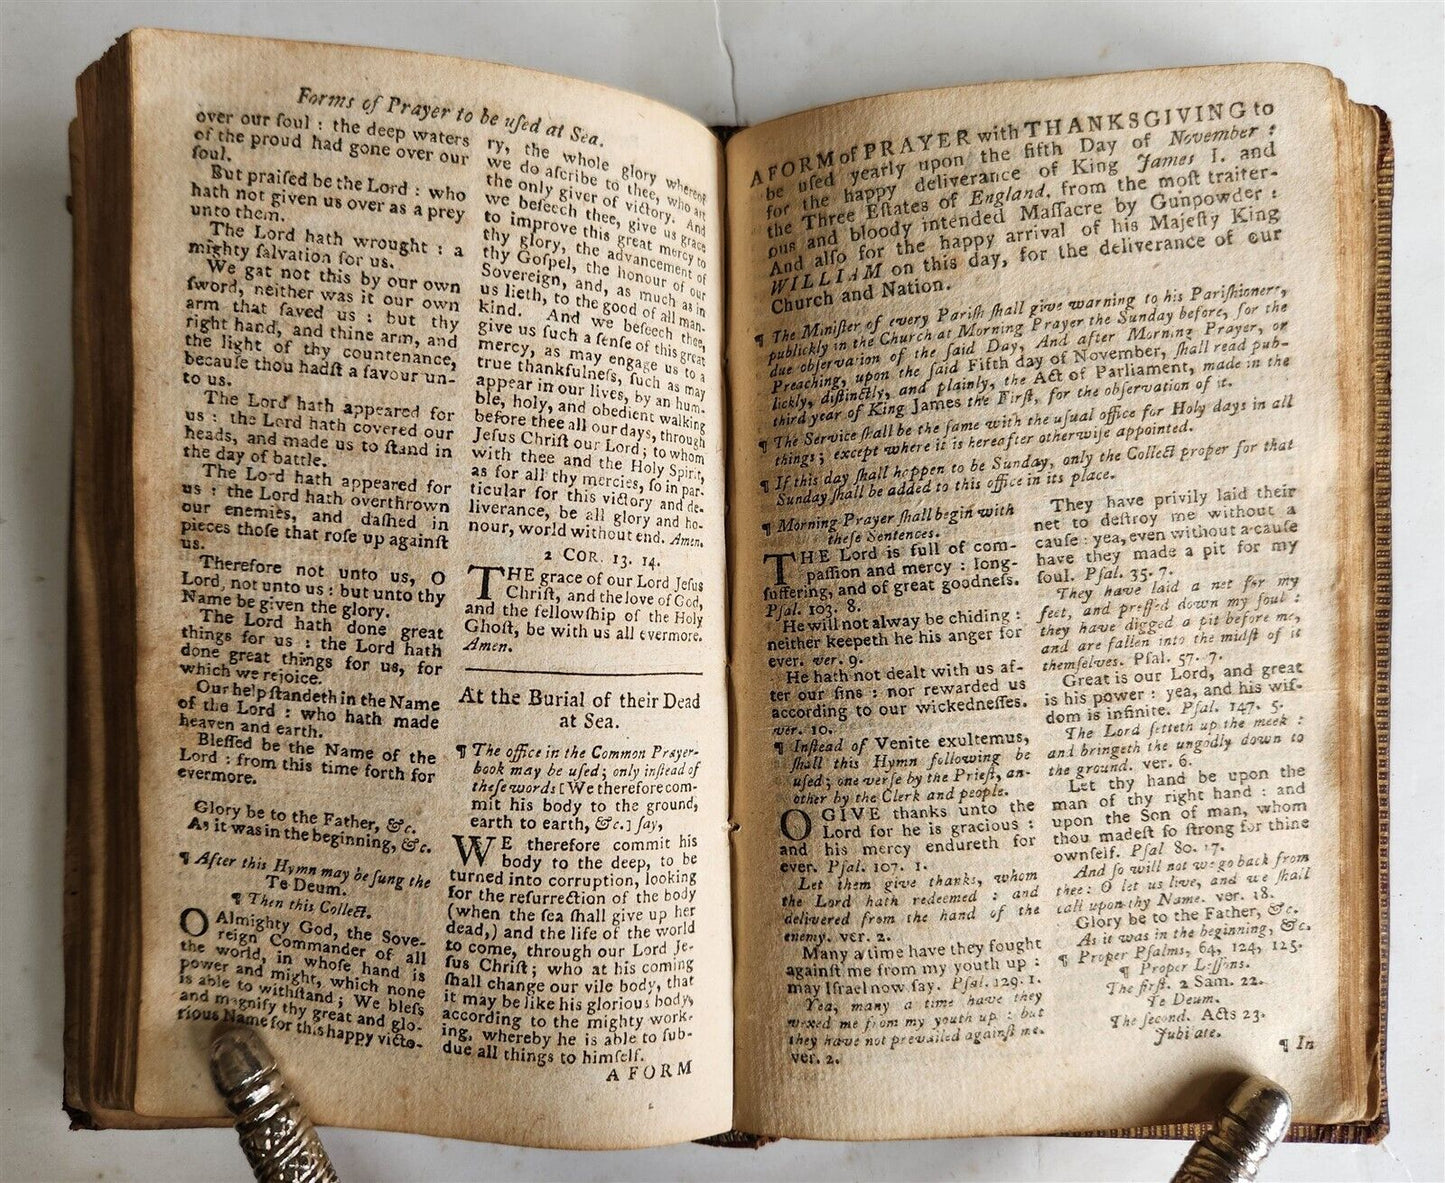 Forms of Prayer to be uſed at Sea.
over our ſoul : the deep waters
of the proud had gone over our
ſoul.
But praiſed be the Lord : who
hath not given us over as a prey
unto them.
The Lord hath wrought : a
mighty ſalvation for us.
We gat not this by our own
ſword, neither was it our own
arm that ſaved us : but thy
right hand, and thine arm, and
the light of thy countenance,
becauſe thou hadſt a favour un-
to us.
The Lord hath appeared for
us : the Lord hath covered our
heads, and made us to ſtand in
the day of battle.
The Lord hath appeared for
us : the Lord hath overthrown
our enemies, and daſhed in
pieces thoſe that roſe up againſt
us.
Therefore not unto us, O
Lord, not unto us : but unto thy
Name be given the glory.
The Lord hath done great
things for us : the Lord hath
done great things for us, for
which we rejoice.
Our help ſtandeth in the Name
of the Lord : who hath made
heaven and earth.
Bleſſed be the Name of the
Lord : from this time forth for
evermore.
Glory be to the Father, &c.
As it was in the beginning, &c.
¶ After this Hymn may be ſung the
Te Deum.
¶ Then this Collect.
O Almighty God, the Sove-
reign Commander of all
the world, in whoſe hand is
power and might, which none
is able to withſtand ; We bleſs
and magnify thy great and glo-
rious Name for this happy victo-
ry, the whole glory whereof
we do aſcribe to thee, who art
the only giver of victory. And
we beſeech thee, give us grace
to improve this great mercy to
thy glory, the advancement of
thy Goſpel, the honour of our
Sovereign, and, as much as in
us lieth, to the good of all man-
kind. And we beſeech thee,
give us ſuch a ſenſe of this great
mercy, as may engage us to a
true thankfulneſs, ſuch as may
appear in our lives, by an hum-
ble, holy, and obedient walking
before thee all our days, through
Jeſus Chriſt our Lord ; to whom
with thee and the Holy Spirit,
as for all thy mercies, ſo in par-
ticular for this victory and de-
liverance, be all glory and ho-
nour, world without end. Amen.
2 COR. 13. 14.
THE grace of our Lord Jeſus
Chriſt, and the love of God,
and the fellowſhip of the Holy
Ghoſt, be with us all evermore.
Amen.
At the Burial of their Dead
at Sea.
¶ The office in the Common Prayer-
book may be uſed ; only inſtead of
theſe words [We therefore com-
mit his body to the ground,
earth to earth, &c.] ſay,
WE therefore commit his
body to the deep, to be
turned into corruption, looking
for the reſurrection of the body
(when the ſea ſhall give up her
dead,) and the life of the world
to come, through our Lord Je-
ſus Chriſt ; who at his coming
ſhall change our vile body, that
it may be like his glorious body,
according to the mighty work-
ing, whereby he is able to ſub-
due all things to himſelf.
A FORM
A FORM of PRAYER with THANKSGIVING to
be uſed yearly upon the fifth Day of November :
for the happy deliverance of King James I. and
the Three Eſtates of England, from the moſt traiter-
ous and bloody intended Maſſacre by Gunpowder :
And alſo for the happy arrival of his Majeſty King
WILLIAM on this day, for the deliverance of our
Church and Nation.
¶ The Miniſter of every Pariſh ſhall give warning to his Pariſhioners,
publickly in the Church at Morning Prayer the Sunday before, for the
due obſervation of the ſaid Day, And after Morning Prayer, or
Preaching, upon the ſaid Fifth day of November, ſhall read pub-
lickly, diſtinctly, and plainly, the Act of Parliament, made in the
third year of King James the Firſt, for the obſervation of it.
¶ The Service ſhall be the ſame with the uſual office for Holy days in all
things ; except where it is hereafter otherwiſe appointed.
¶ If this day ſhall happen to be Sunday, only the Collect proper for that
Sunday ſhall be added to this office in its place.
¶ Morning Prayer ſhall begin with
theſe Sentences.
THE Lord is full of com-
paſſion and mercy : long-
ſuffering, and of great goodneſs.
Pſal. 103. 8.
He will not alway be chiding :
neither keepeth he his anger for
ever. ver. 9.
He hath not dealt with us af-
ter our ſins : nor rewarded us
according to our wickedneſſes.
ver. 10.
¶ Inſtead of Venite exultemus,
ſhall this Hymn following be
uſed ; one verſe by the Prieſt, an-
other by the Clerk and people.
O GIVE thanks unto the
Lord for he is gracious :
and his mercy endureth for
ever. Pſal. 107. 1.
Let them give thanks, whom
the Lord hath redeemed : and
delivered from the hand of the
enemy. ver. 2.
Many a time have they fought
againſt me from my youth up :
may Iſrael now ſay. Pſal. 129. 1.
Yea, many a time have they
vexed me from my youth up : but
they have not prevailed againſt me.
ver. 2.
They have privily laid their
net to deſtroy me without a
cauſe : yea, even without a cauſe
have they made a pit for my
ſoul. Pſal. 35. 7.
They have laid a net for my
feet, and preſſed down my ſoul :
they have digged a pit before me,
and are fallen into the midſt of it
themſelves. Pſal. 57. 7.
Great is our Lord, and great
is his power : yea, and his wiſ-
dom is infinite. Pſal. 147. 5.
The Lord ſetteth up the meek :
and bringeth the ungodly down to
the ground. ver. 6.
Let thy hand be upon the
man of thy right hand : and
upon the Son of man, whom
thou madeſt ſo ſtrong for thine
ownſelf. Pſal 80. 17.
And ſo will not we go back from
thee : O let us live, and we ſhall
call upon thy Name. ver. 18.
Glory be to the Father, &c.
As it was in the beginning, &c.
¶ Proper Pſalms, 64, 124, 125.
¶ Proper Leſſons.
The firſt. 2 Sam. 22.
Te Deum.
The ſecond. Acts 23.
Jubilate.
¶ In